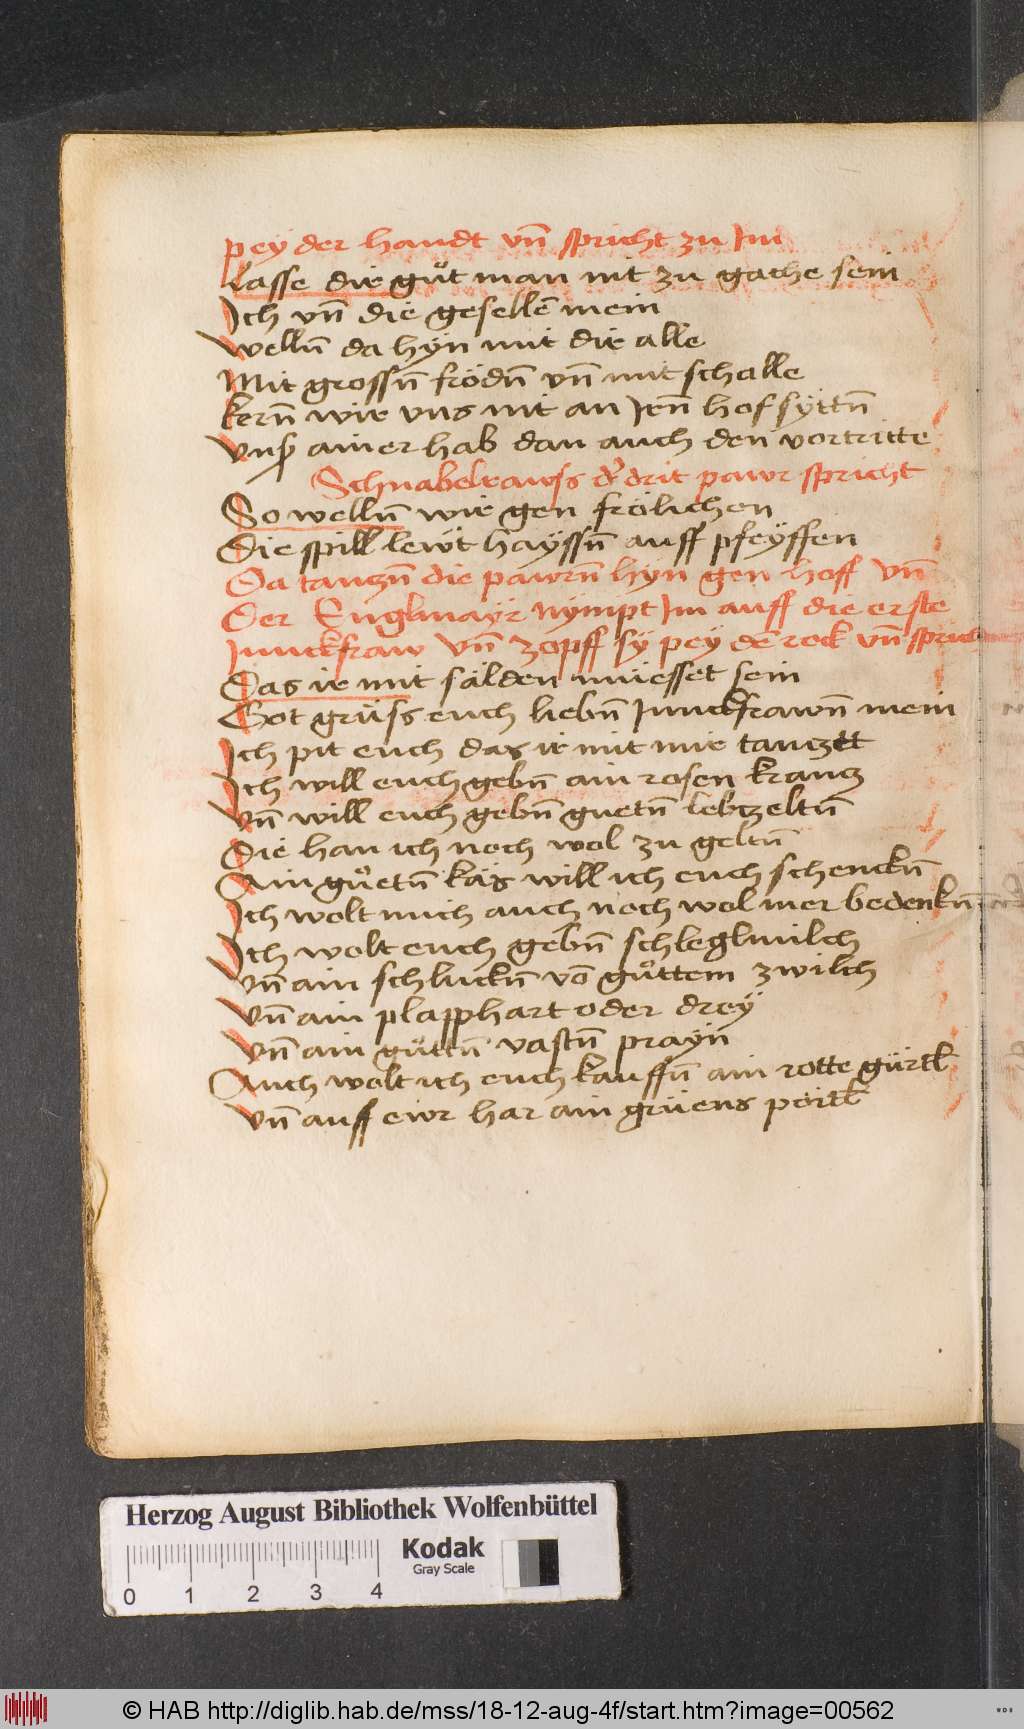 pey der handt vn̄ spricht zu Im
Lasse dir gůt man nit zu gache sein
Ich vn̄ die gesellē mein
welln̄ da hyn mit dir alle
Mit grossn̄ frödn̄ vn̄ mit schalle
kern̄ wir vns nit an Jrn̄ hof syttn̄
vnß ainer hab dan auch den vortritte
Schnabelrawſs dʼ drit pawr spricht
So welln̄ wir gen frölichen
Die spill lewt hayssn̄ auff pfeyffen
Da tanczn̄ die pawrn̄ hyn gen hoff vn̄
Der Englmayr nympt Im auff die erste
Junckfraw vn̄ zopff sy pey dē rock vn̄ spricht
Das ir mit sälden müesset sein
Got grüſs euch liebn̄ Junckfrawn̄ mein
Ich pit euch das ir mit mir tanczt
Ich will euch gebn̄ ain rosen krancz
vn̄ will euch gebn̄ guetn̄ lebczeltn̄
die han ich noch wol zu geltn̄
Ain gůetn̄ käs will ich euch schenckn̄
Ich wolt mich auch noch wol mer bedenkn̄
Ich wolt euch gebn̄ schleglmilch
vn̄ ain schluckn̄ vō gůttem zwilch
vn̄ ain plapphart oder drey
vn̄ ain gůttn̄ vastn̄ prayn
Auch wolt ich euch kauffn̄ ain rotte gürtl
vn̄ auff ewr har ain grüens
Herzog August Bibliothek Wolfenbüttel
Kodak
Gray Scale
0 1 2 3 4
© HAB http://diglib.hab.de/mss/18-12-aug-4f/start.htm?image=00562